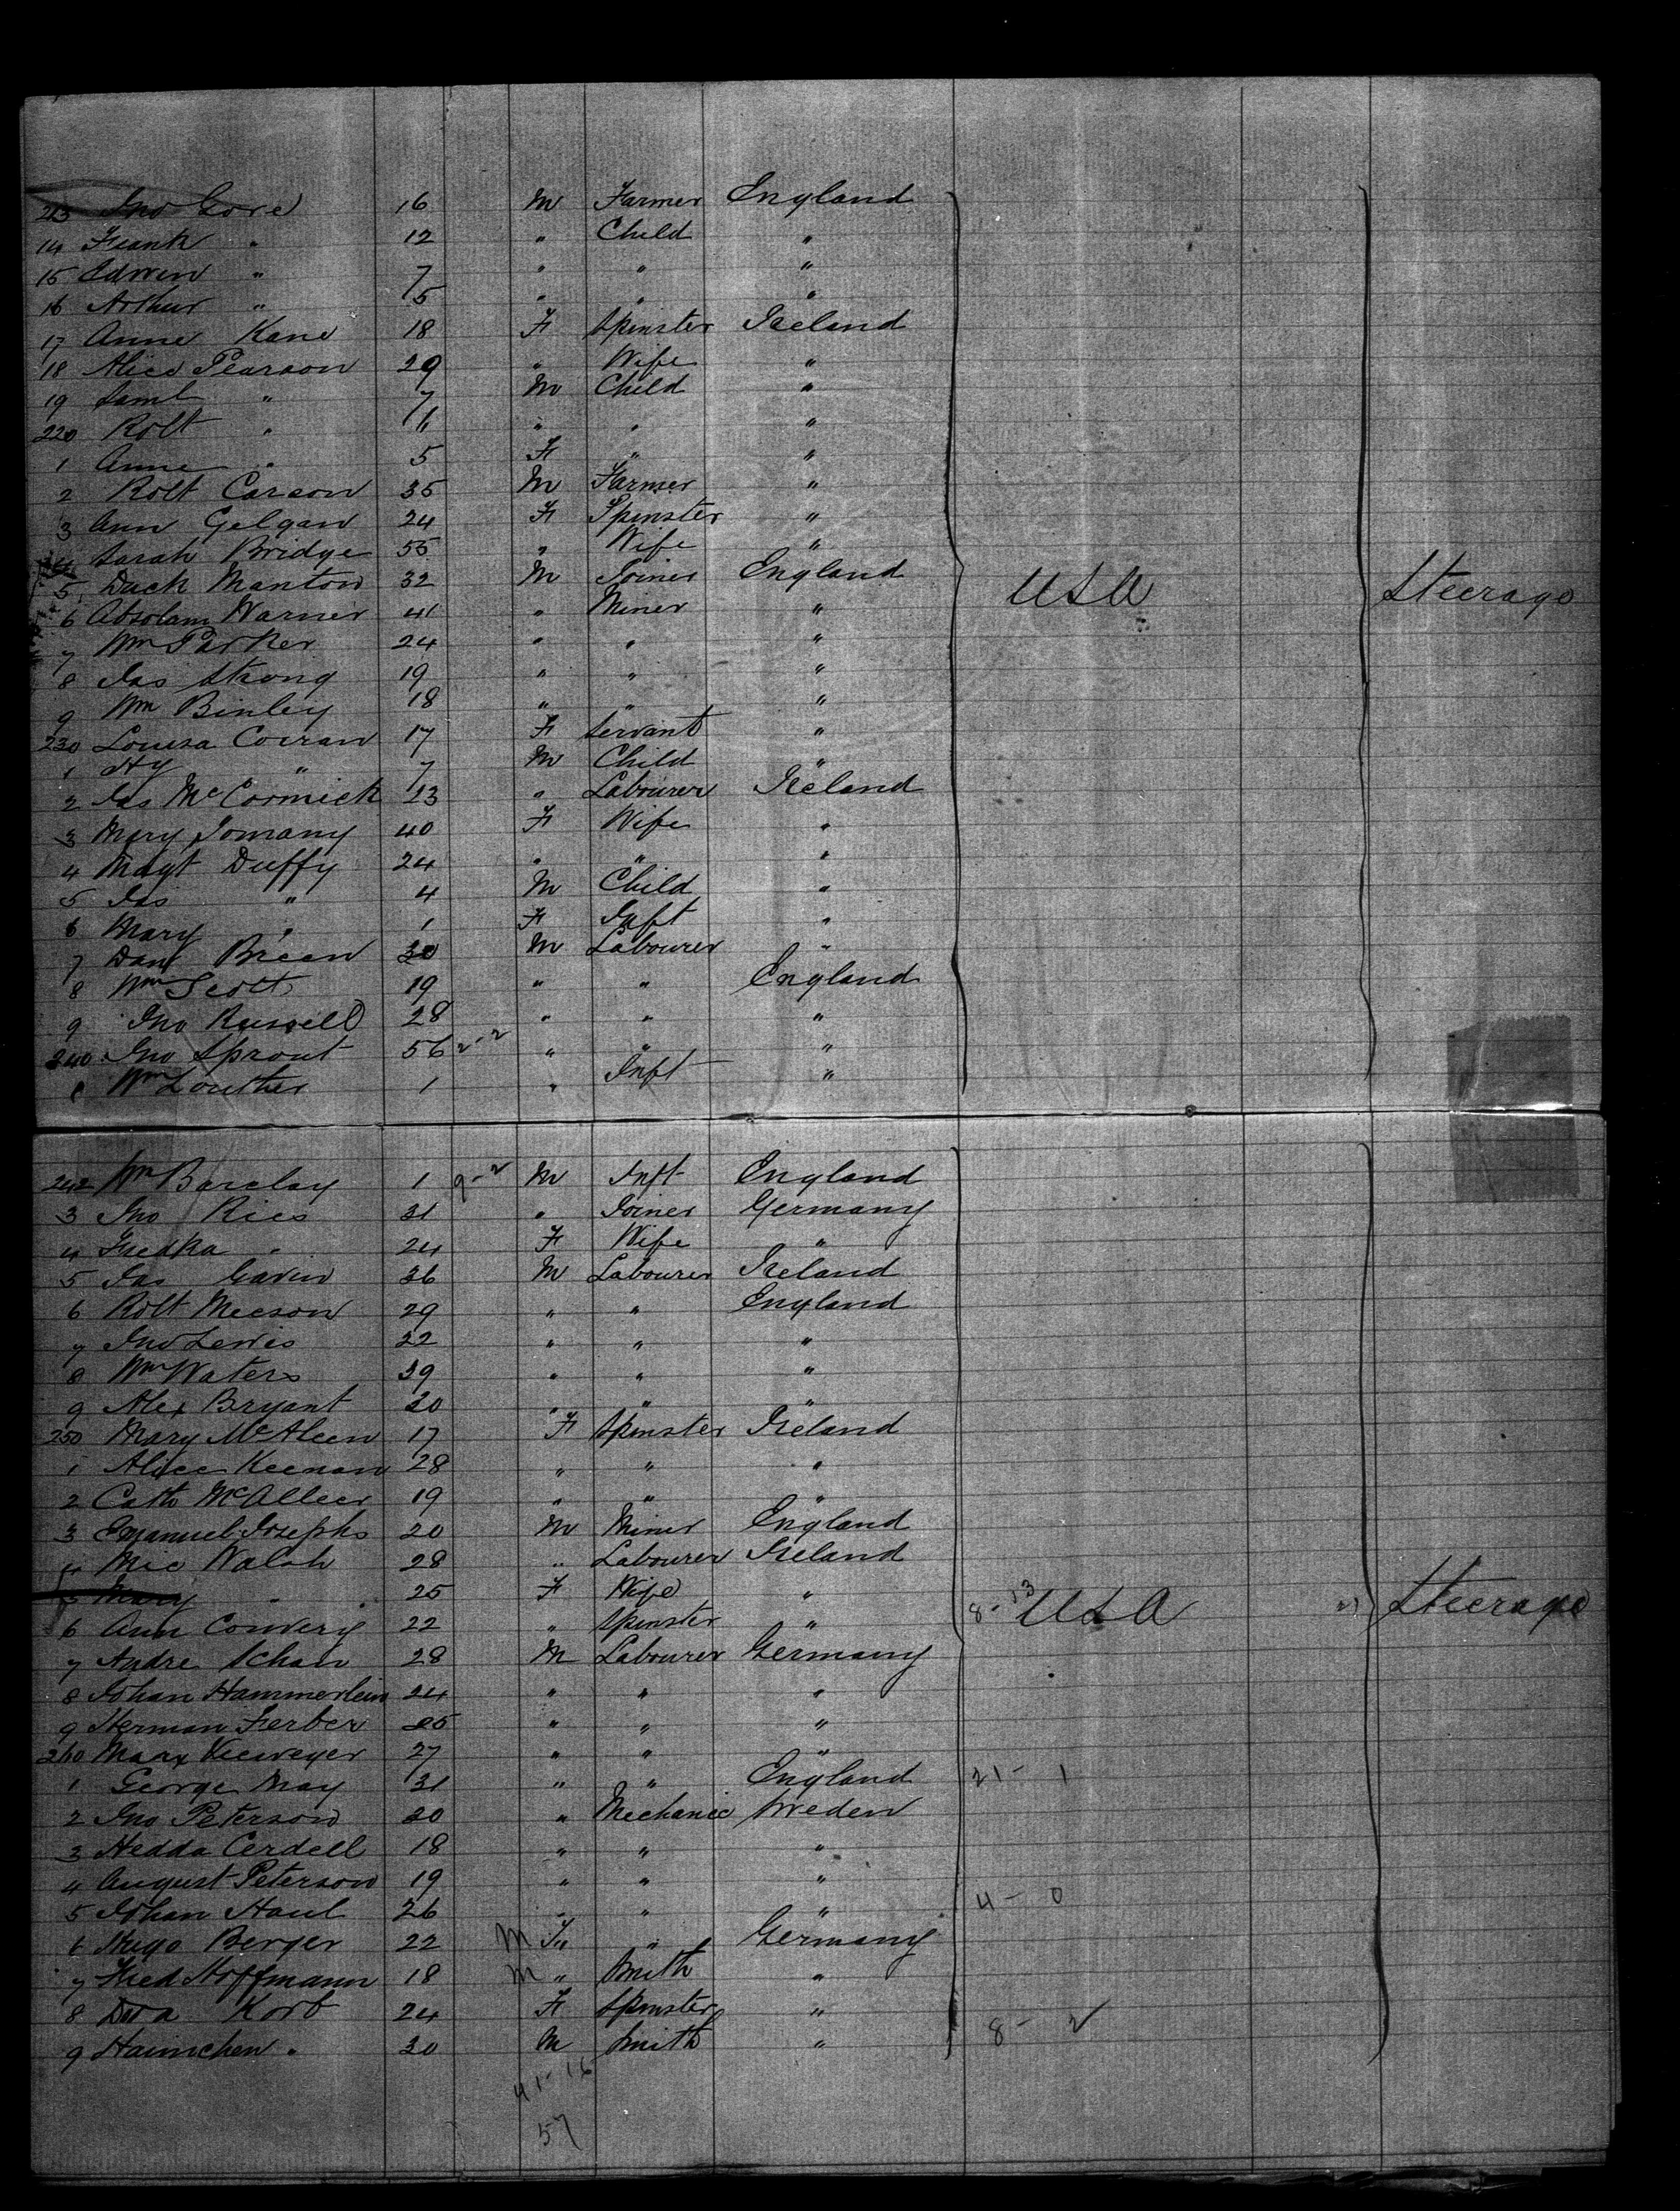 213 Jno Gore 16 M Farmer England
14 Frank " 12 " Child "
15 Edwin " 7 " " "
16 Arthur " 5 " " "
17 Anne Kane 18 F Spinster Ireland
18 Alice Pearson 29 " Wife "
19 Saml " 7 M Child "
220 Robt " 6 " " "
1 Anne " 5 F " "
2 Robt Carson 35 M Farmer "
3 Ann Gelgan 24 F Spinster "
4 Sarah Bridge 55 " Wife "
5 Manton 32 M Joiner England
6 Absolam Warner 41 " Miner "
USA Steerage
7 Wm Parker 24 " " "
8 Jas Strong 19 " " "
9 Wm Binley 18 " " "
230 Louisa Corran 17 F Servant "
1 Hy " 7 M Child "
2 Jas McCormick 23 " Labourer Ireland
3 Mary 40 F Wife "
4 Magt Duffy 24 " " "
5 Jas " 4 M Child "
6 Mary " 1 F Inft "
7 Danl Breen 30 M Labourer "
8 Wm Scott 19 " " England
9 Jno Russell 28 " " "
240 Jno Sprout 56 2-2 " " "
1 Wm Louther 1 " Inft "
242 Wm Barclay 1 9-2 M Inft England
3 Jno Ries 31 " Joiner Germany
4 Fredka " 24 F Wife "
5 Jas Gavin 36 M Labourer Ireland
6 Robt Meeson 29 " " England
7 Jno Lewis 22 " " "
8 Wm Waters 39 " " "
9 Alex Bryant 20 " " "
250 Mary McAleen 17 F Spinster Ireland
1 Alice Keenan 28 " " "
2 Cath McAlleer 19 " " "
3 Emanuel Josephs 20 M Miner England
4 Mic Walsh 28 " Labourer Ireland
5 Mary " 25 F Wife "
8-13 USA 21 Steerage
6 Ann Convery 22 " Spinster "
7 Andre Schan 28 M Labourer Germany
8 Johan Hammerlein 24 " " "
9 Herman Ferber 25 " " "
260 Marx 27 " " "
1 George May 31 " " England 21- 1
2 Jno Peterson 20 " Mechanic Sweden
3 Hedda Cerdell 18 " " "
4 August Peterson 19 " " "
5 Johan Haul 26 " " " 4- 0
6 Hugo Berger 22 M F " Germany
7 Fred Hoffmann 18 M " Smith "
8 Korb 24 F Spinster "
9 Hainchen " 30 M Smith " 8- 2
41-16
57